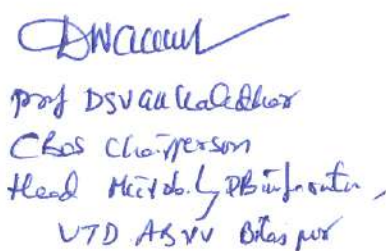 Prof DSVGK Kaladhar
CBOS Chairperson
Head Microbiology & Bioinformatics,
UTD ABVV Bilaspur